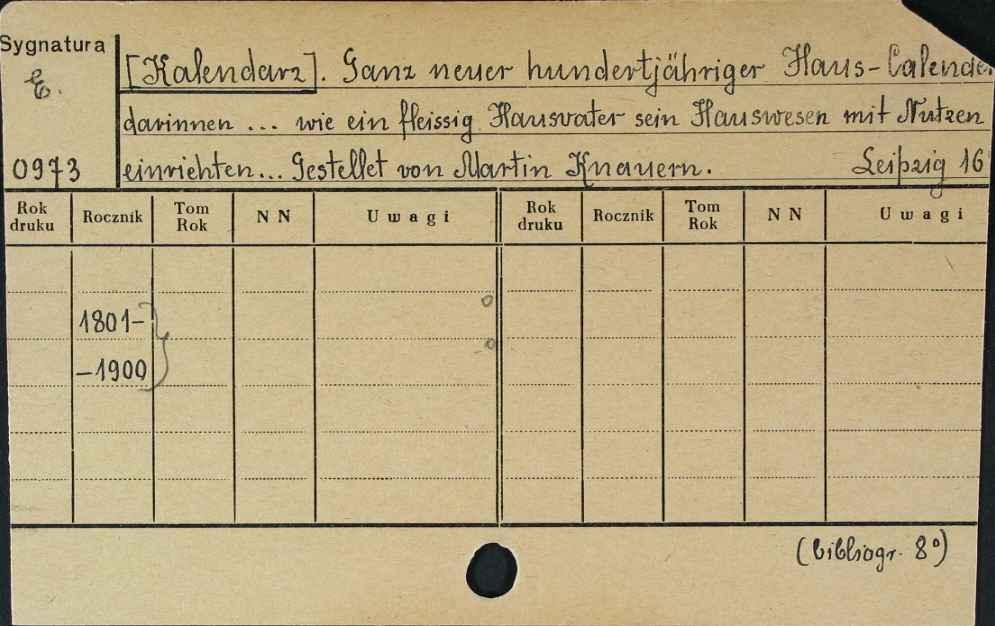 Sygnatura
E.
0973
[Kalendarz]. Ganz neuer hundertjähriger Haus-Calende
darinnen ... wie ein fleissig Hausvater sein Hauswesen mit Nutzen
einrichten... Gestellet von Martin Knauern. Leipzig 16
Rok druku Rocznik Tom Rok NN Uwagi Rok druku Rocznik Tom Rok NN Uwagi
1801-
-1900
(bibliogr. 8°)